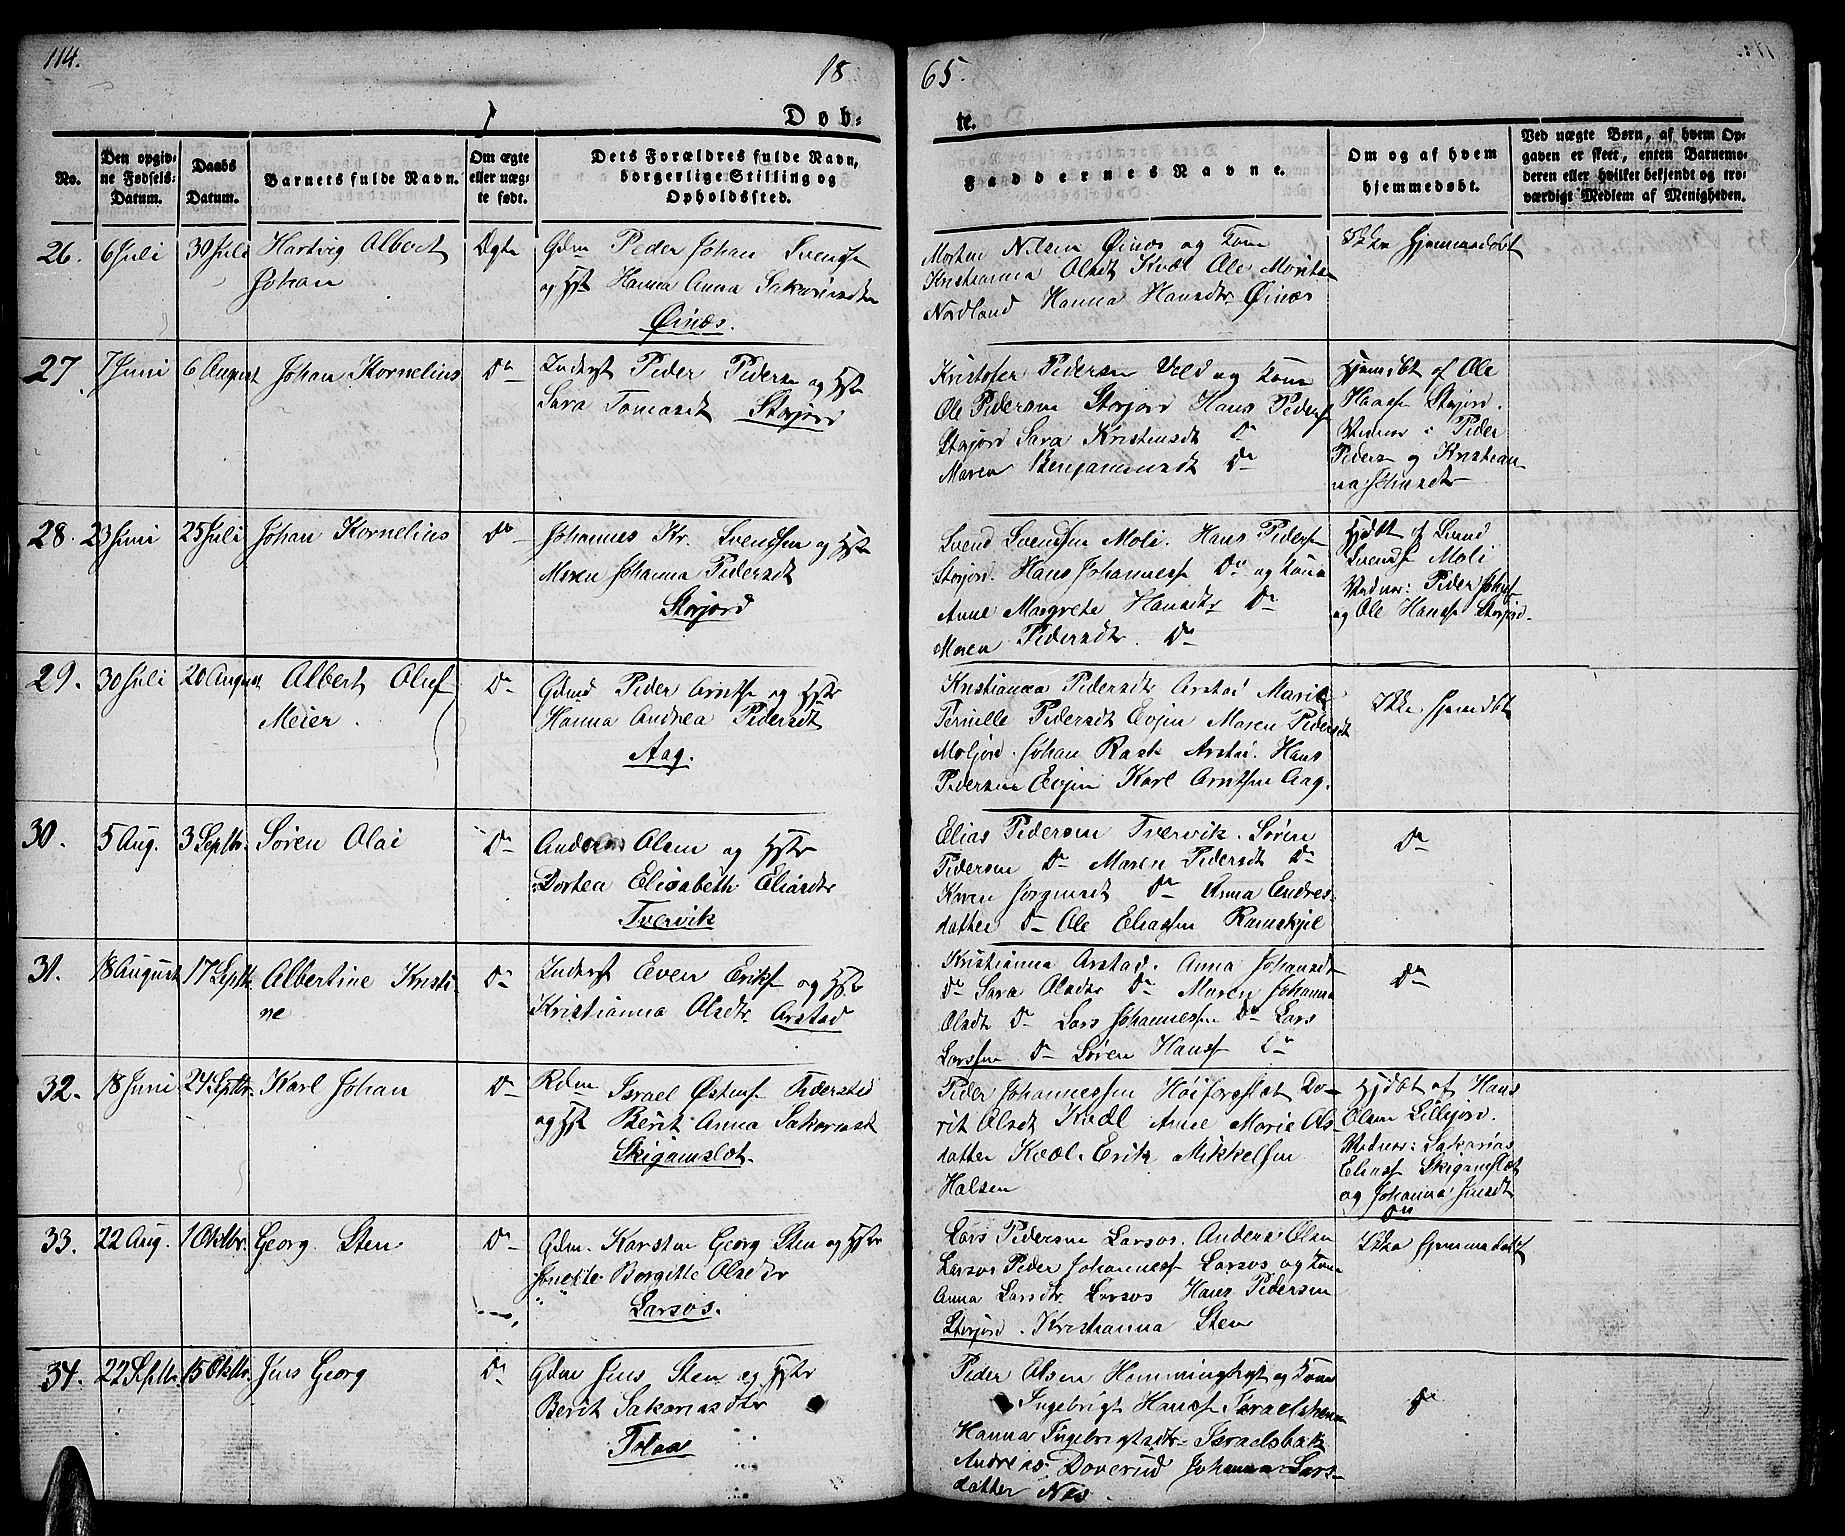 114.
18
65.
Døb-
te.
No.
Den opgiv-
ne Fødsels-
Datum.
Daabs
Datum.
Barnets fulde Navn.
Om ægte
eller uæg-
te født.
Dets Forældres fulde Navn,
borgerlige Stilling og
Opholdssted.
Faddernes Navne.
Om og af hvem
hjemmedøbt.
Ved uægte Børn, af hvem Op-
gaven er skeet, enten Barnemo-
deren eller hvilket bekjendt og tro-
værdigt Medlem af Menigheden.
26. 6 Juli 30 Juli Hartvig Albert
Johan
Ægte
Gdm Peder Johan Svends
og Hst Hanna Anna Sakariasdtr
Øines.
Morten Nilsen Øines og Kone
Kristianna Olsdt Kvæl Ole Morits
Nordland Hanna Hansdtr Øines
Ikke Hjemmedøbt
27 7 Juni 6 August Johan Kornelius
Do
Inderst Peder Pedersen og Hst
Sara Tomasdt Storjord
Kristofer Pedersen Vold og Kone
Ole Pedersen Storjord Hans Peders
Storjord Sara Kristensdt Do
Maren Benjaminsdt Do
Hjemdbt af Ole
Hanssen Storjord.
Vidner: Peder
Pedersen og Kristian-
na Johnsdtr
28. 23 Juni 25 Juli Johan Kornelius
Do
Johannes Kr. Svendsen og Hst
Maren Johanna Pedersdt
Storjord
Svend Svendsen Moli. Hans Peders
Storjord. Hans Johanness Do og Kone
Anne Margrete Hansdtr Do
Maren Pedersdtr. Do
Hjdbt af Svend
Svends Moli
Vidner: Peder Johs
og Ole Hans Storjord.
29. 30 Juli 20 August Albert Oluf
Meier.
Do
Gdmd Peder Arnts og Hstr
Hanna Andrea Pedersdt
Aag.
Kristianna Pedersdtr Arstad Marit
Pernille Pedersdt Evjen Maren Pedersdt
Moljord. Johan Rask Arstad. Hans
Pedersen Evjen Karl Arntsen Aag.
Ikke hjemdbt
30. 5 Aug. 3 Septbr. Søren Olai
Do
Anders Olsen og Hstr
Dortea Elisabeth Eliasdtr
Tvervik
Elias Pedersen Tvervik. Søren
Pedersen Do Maren Pedersdt Do
Karen Jørgensdt Do Anna Endres-
datter Do Ole Eliassen Ramskjel
Do
31. 18 August 17 Septbr Albertine Kristi-
ne
Do
Inderst Even Eriks og Hstr
Kristianna Olsdtr. Arstad
Kristianna Arstad. Anna Johansdt
Do Sara Olsdtr Do Maren Johanna
Olsdt Do Lars Johannessen Do Lars
Larssen Do Søren Hanss Do
Do
32. 18 Juni 24 Septbr Karl Johan
Do
Rdm Israel Østens
og Hst Berit Anna Sakariasdt
Skigamslet.
Peder Johannessen Høiforsslet Do-
rit Olsdt Kvæl Anne Marie Ols-
datter Kvæl. Erik Mikkelsen
Halsen
Hjdbt af Hans
Olsen Lilljord.
Vidner: Sakarias
Elias Skigamslet
og Johanna Jensdt
Do
33. 22 Aug. 1 Oktbr. Georg Sten
Do
Gdm. Karsten Georg Sten og Hstr
Borgitte Olsdtr
Larsos.
Lars Pedersen Larsos. Anders Olsen
Larsos Peder Johanness Larsos og Kone
Anna Larsdtr Larsos Hans Pedersen
Storjord. Kristianna Sten
Ikke hjemmedøbt
34. 22 Septbr. 15 Oktbr. Jens Georg
Do
Gdm Jens Sten og Hstr
Berit Sakariasdtr
Tolaa
Peder Olsen Hemminghyt og Kone
Ingebrigt Hanss Israelsbak
Hanna Ingebrigtsdtr Israelsbak
Andreas Doverud Johanna Lars-
datter Nes.
Do